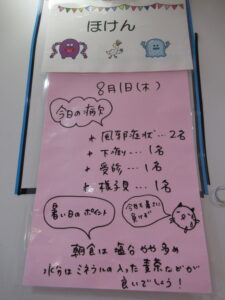 ほけん
8月1日(木)
今日の病欠
+ 風邪症状…2名
+ 下痢…1名
+ 受診…1名
+ 様子見…1名
暑い日のポイント
今日も暑さに負けず
朝食は塩分やや多め
水分はミネラルの入った麦茶などが
良いでしょう!